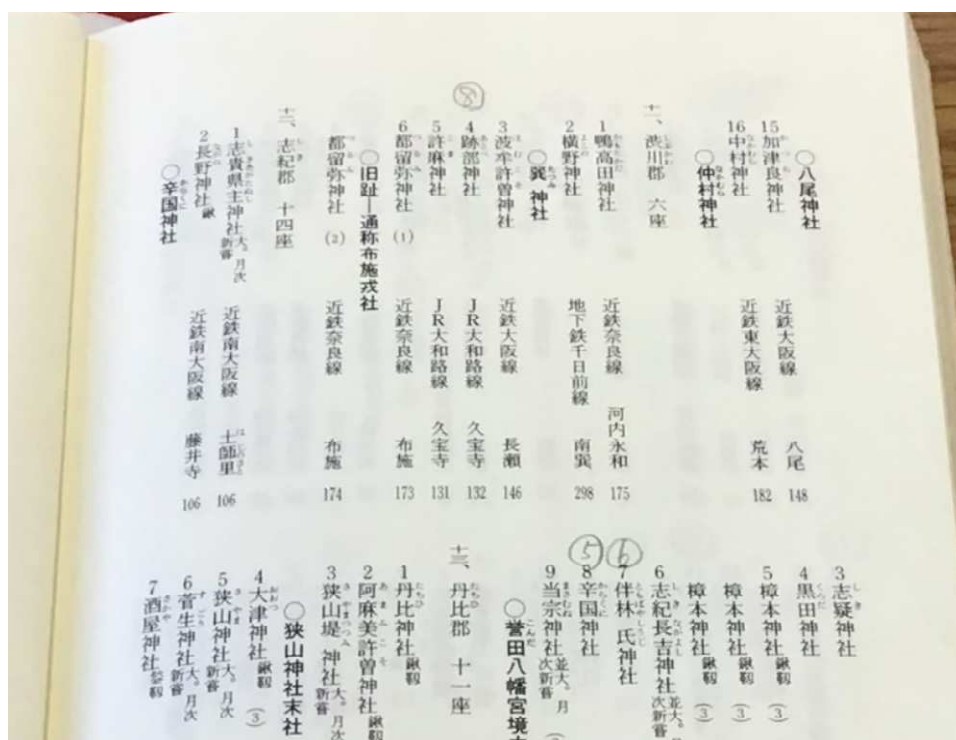 ○八尾神社
15 加津良神社 近鉄大阪線 八尾 148
16 中村神社 近鉄東大阪線 荒本 182
○仲村神社
十一、渋川郡 六座
1 鴨高田神社 近鉄奈良線 河内永和 175
2 横野神社 地下鉄千日前線 南巽 298
○巽神社
3 波牟許曽神社 近鉄大阪線 長瀬 146
⑧
4 跡部神社 JR大和路線 久宝寺 132
5 許麻神社 JR大和路線 久宝寺 131
6 都留弥神社(1) 近鉄奈良線 布施 173
○旧趾―通称布施戎社
都留弥神社(2) 近鉄奈良線 布施 174
十二、志紀郡 十四座
1 志貴県主神社 大。月次新嘗 近鉄南大阪線 土師里 106
2 長野神社 鍬 近鉄南大阪線 藤井寺 106
○辛国神社
3 志疑神社
4 黒田神社
5 樟本神社 鍬靱(3)
樟本神社 鍬靱(3)
樟本神社 鍬靱(3)
6 志紀長吉神社 並大。次新嘗
⑥
7 伴林氏神社
⑤
8 辛国神社
9 当宗神社 並大。月次新嘗
○誉田八幡宮境
十三、丹比郡 十一座
1 丹比神社 鍬靱
2 阿麻美許曽神社 鍬
3 狭山堤神社 大。月次新嘗
○狭山神社末社
4 大津神社 鍬靱(3)
5 狭山神社 大。月次新嘗
6 菅生神社 大。月次新嘗
7 酒屋神社 鍬靱